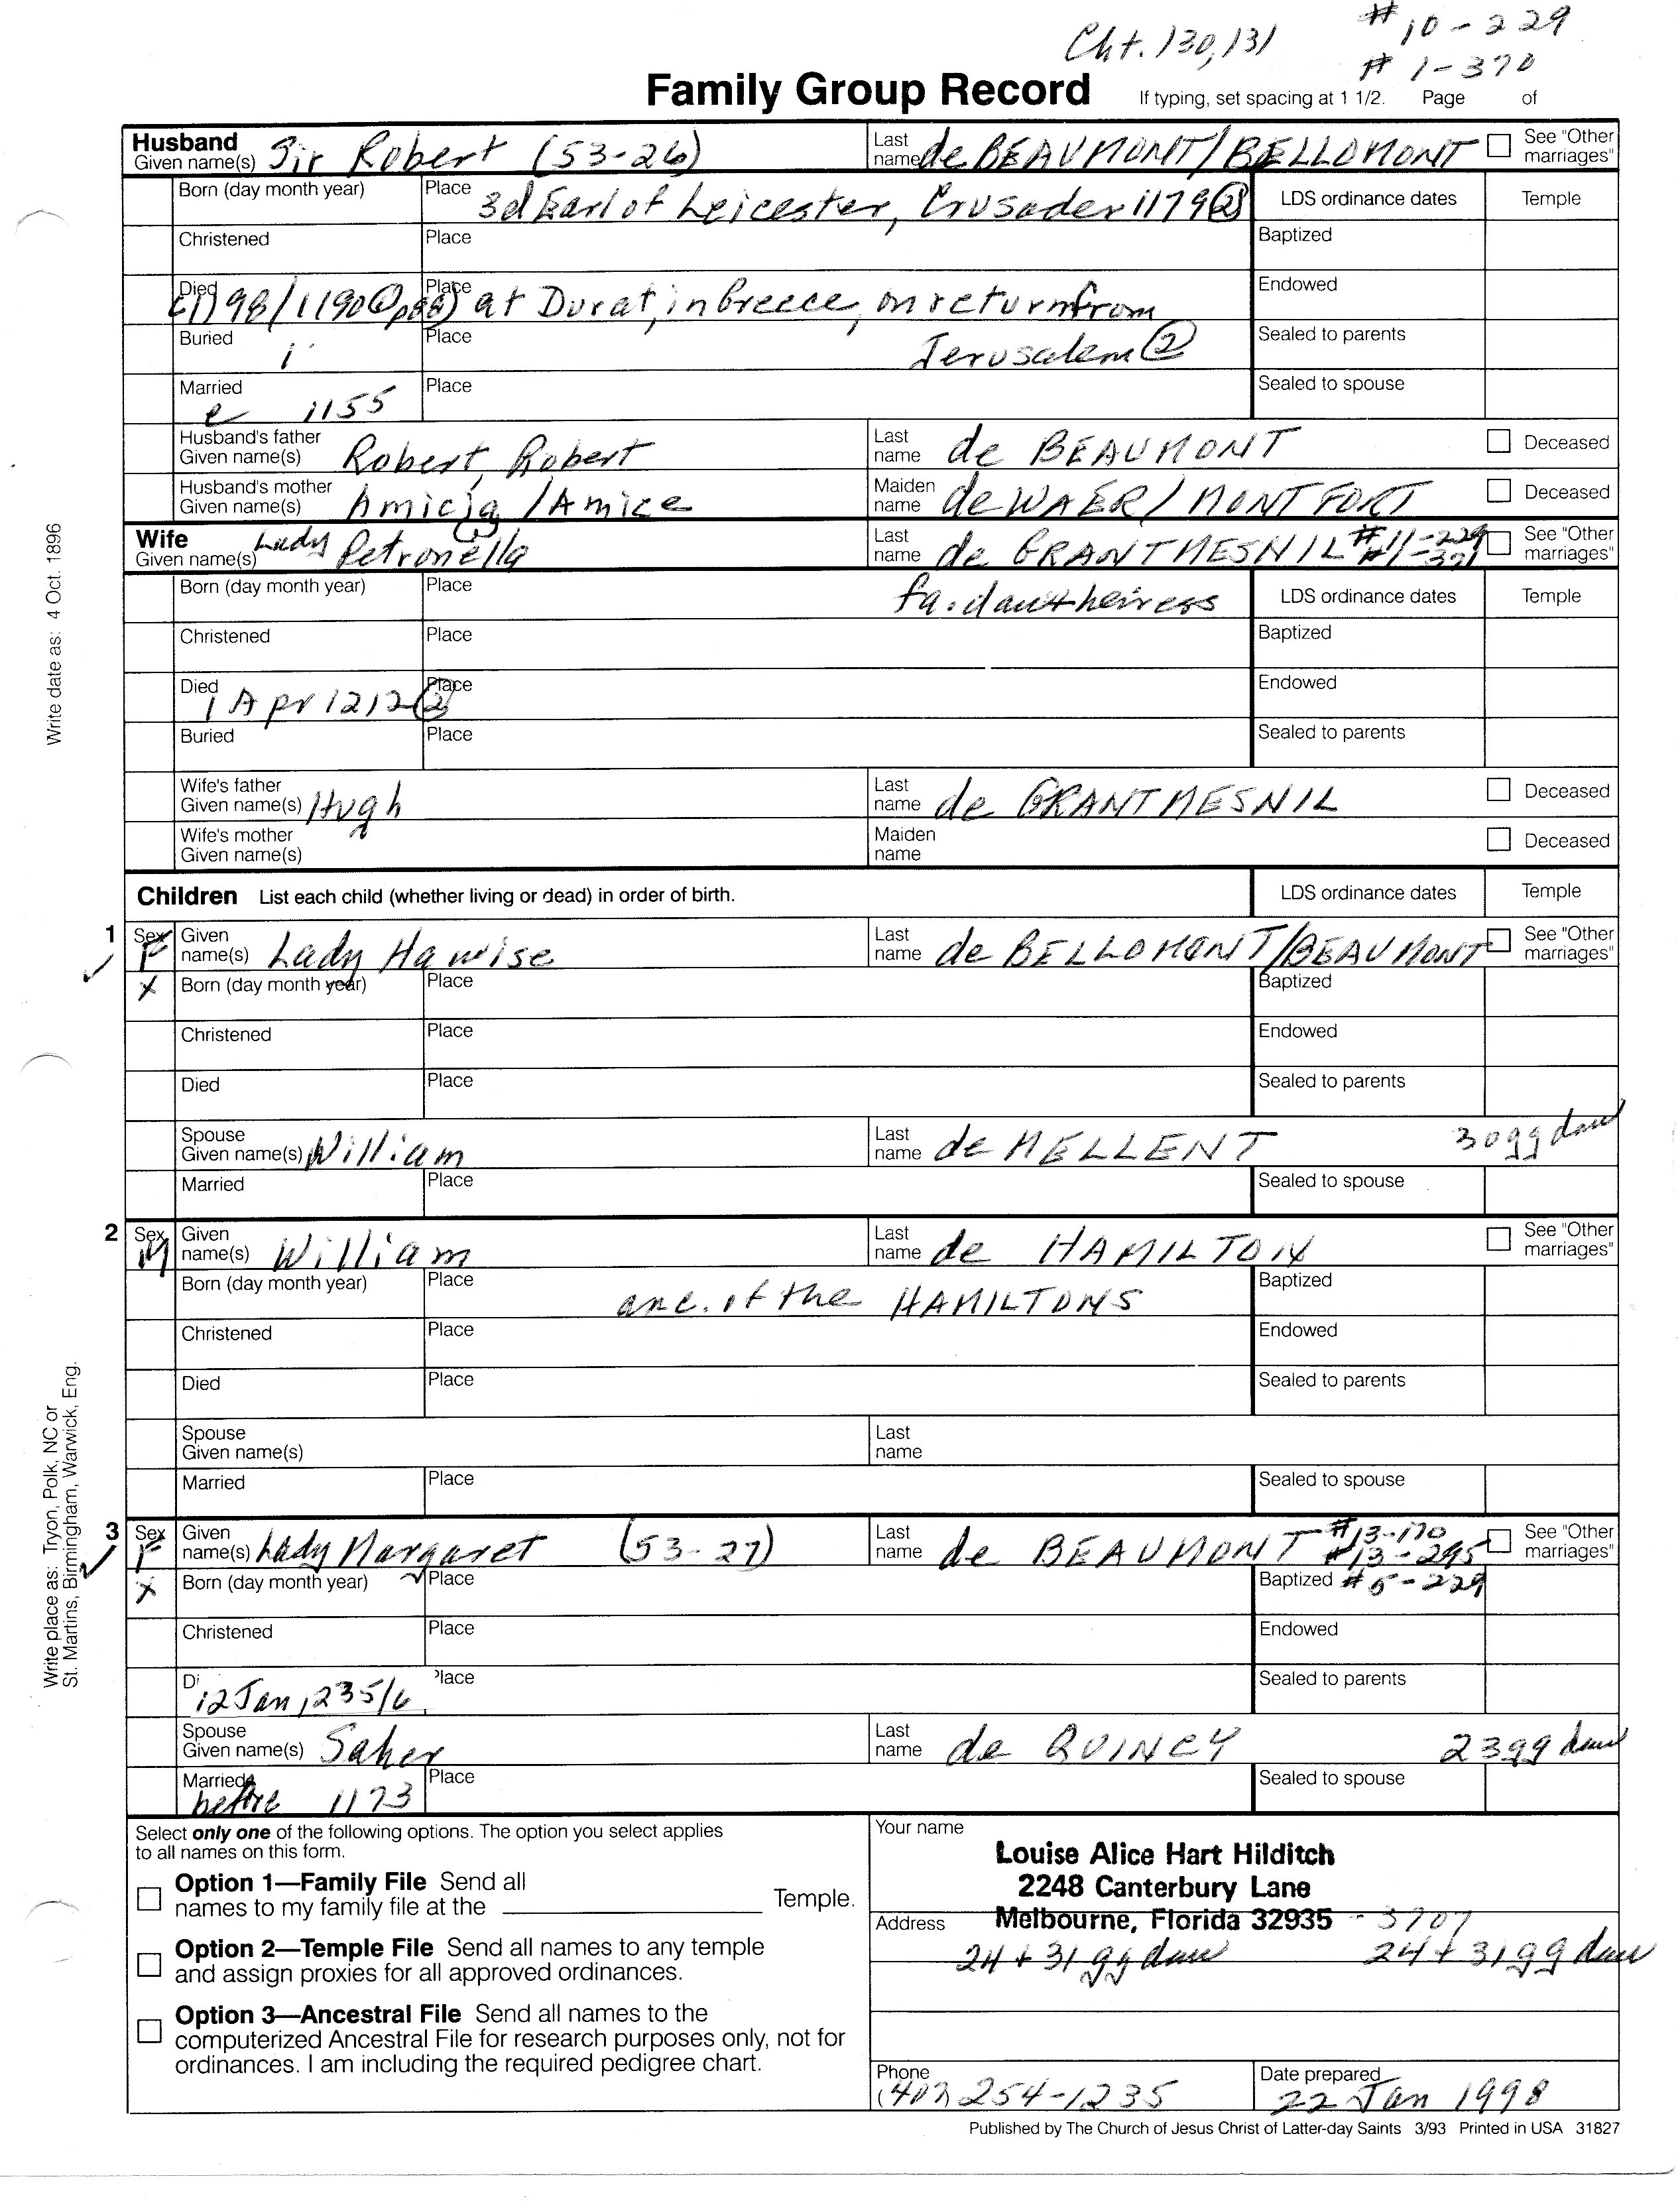 Cht. 130,131 #10-229
#1-370
Family Group Record If typing, set spacing at 1 1/2. Page of
Husband
Given name(s) Sir Robert (53-26) Last name de BEAUMONT/BELLOMONT See "Other marriages"
Born (day month year) Place 3d Earl of Leicester, Crusader 1179 (2) LDS ordinance dates Temple
Christened Place Baptized
Died 98/1190 Place at Durat, in Greece, on return from Endowed
Buried Place Jerusalem (2) Sealed to parents
Married 1155 Place Sealed to spouse
Husband's father Given name(s) Robert, Robert Last name de BEAUMONT Deceased
Husband's mother Given name(s) Amicia /Amice Maiden name de WAER/MONTFORT Deceased
Wife
Given name(s) Lady Petronella Last name de GRANTMESNIL #11-229 #1-371 See "Other marriages"
Born (day month year) Place fa. dau + heiress LDS ordinance dates Temple
Christened Place Baptized
Died 1 Apr 1212 (2) Place Endowed
Buried Place Sealed to parents
Wife's father Given name(s) Hugh Last name de GRANTMESNIL Deceased
Wife's mother Given name(s) Maiden name Deceased
Children List each child (whether living or dead) in order of birth. LDS ordinance dates Temple
1 Sex F Given name(s) Lady Hawise Last name de BELLOMONT/BEAUMONT See "Other marriages"
X Born (day month year) Place Baptized
Christened Place Endowed
Died Place Sealed to parents
Spouse Given name(s) William Last name de MELLENT 30gg dau
Married Place Sealed to spouse
2 Sex M Given name(s) William Last name de HAMILTON See "Other marriages"
Born (day month year) Place anc. of the HAMILTONS Baptized
Christened Place Endowed
Died Place Sealed to parents
Spouse Given name(s) Last name
Married Place Sealed to spouse
3 Sex F Given name(s) Lady Margaret (53-27) Last name de BEAUMONT #13-170 #13-295 See "Other marriages"
X Born (day month year) Place Baptized #5-229
Christened Place Endowed
Di 12 Jan 1235/6 Place Sealed to parents
Spouse Given name(s) Saher Last name de QUINCY 23gg dau
Married before 1173 Place Sealed to spouse
Select only one of the following options. The option you select applies
to all names on this form.
Option 1—Family File Send all
names to my family file at the Temple.
Option 2—Temple File Send all names to any temple
and assign proxies for all approved ordinances.
Option 3—Ancestral File Send all names to the
computerized Ancestral File for research purposes only, not for
ordinances. I am including the required pedigree chart.
Your name
Louise Alice Hart Hilditch
2248 Canterbury Lane
Address Melbourne, Florida 32935 - 3707
24 + 31 gg dau 24 + 31 gg dau
Phone (407) 254-1235 Date prepared 22 Jan 1998
Published by The Church of Jesus Christ of Latter-day Saints 3/93 Printed in USA 31827
Write date as: 4 Oct. 1896
Write place as: Tryon, Polk, NC or
St. Martins, Birmingham, Warwick, Eng.